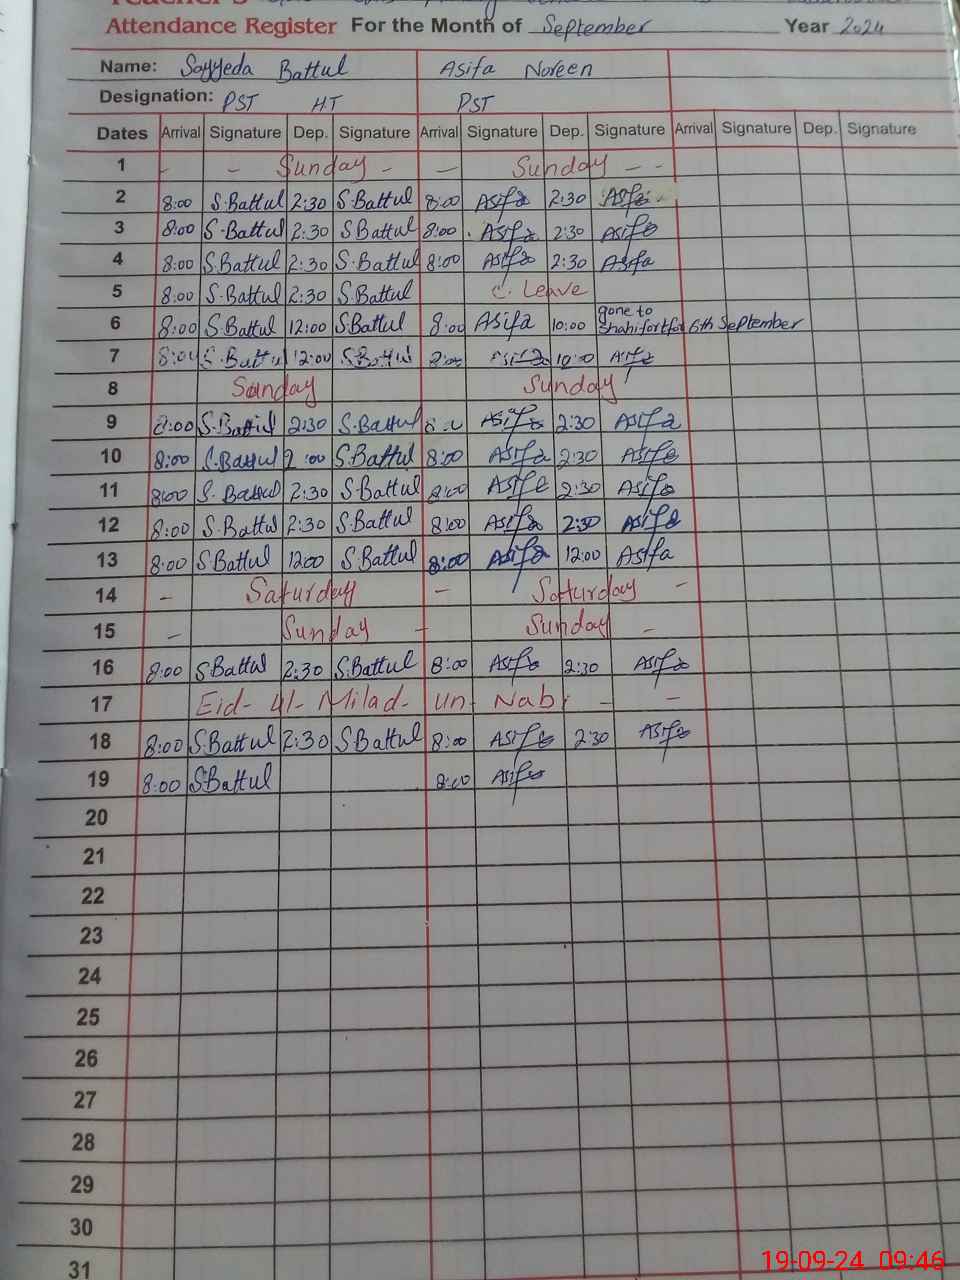 Attendance Register For the Month of September Year 2024
Name: Sayyeda Battul Asifa Noreen
Designation: PST HT PST
Dates Arrival Signature Dep. Signature Arrival Signature Dep. Signature Arrival Signature Dep. Signature
1 - - Sunday - - Sunday - -
2 8:00 S.Battul 2:30 S.Battul 8:00 Asifa 2:30 Asifa
3 8:00 S.Battul 2:30 S Battul 8:00 Asifa 2:30 Asifa
4 8:00 S.Battul 2:30 S.Battul 8:00 Asifa 2:30 Asifa
5 8:00 S.Battul 2:30 S.Battul C. Leave
6 8:00 S.Battul 12:00 S.Battul 8:00 Asifa 10:00 gone to
Shahifort for 6th September
7 8:00 S.Battul 12:00 S.Battul 8:00 Asifa 10:00 Asifa
8 Sunday Sunday
9 8:00 S.Battul 2:30 S.Battul Asifa 2:30 Asifa
10 8:00 S.Battul 2:00 S.Battul 8:00 Asifa 2:30 Asifa
11 8:00 S.Battul 2:30 S.Battul 8:00 Asifa 2:30 Asifa
12 8:00 S.Battul 2:30 S.Battul 8:00 Asifa 2:30 Asifa
13 8:00 S.Battul 12:00 S.Battul 8:00 Asifa 12:00 Asifa
14 - Saturday - Saturday -
15 - Sunday - Sunday -
16 8:00 S.Battul 2:30 S.Battul 8:00 Asifa 2:30 Asifa
17 Eid- ul- Milad- un- Nabi - -
18 8:00 S.Battul 2:30 S.Battul 8:00 Asifa 2:30 Asifa
19 8:00 S.Battul 8:00 Asifa
20
21
22
23
24
25
26
27
28
29
30
31
19-09-24 09:46